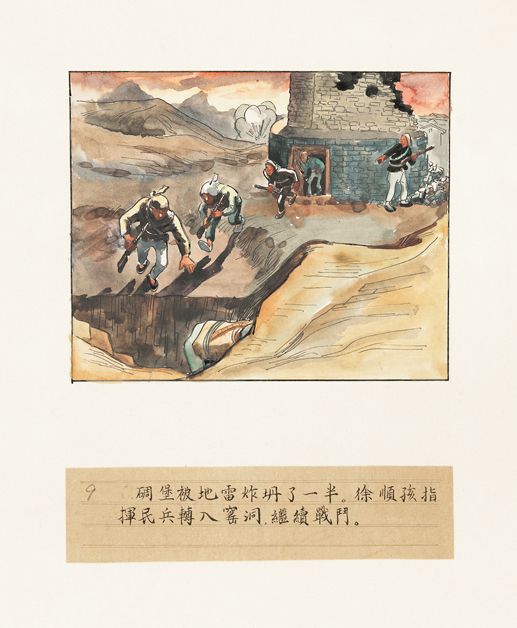 9 碉堡被地雷炸坍了一半。徐順孩指
揮民兵轉入窰洞,繼續戰鬥。